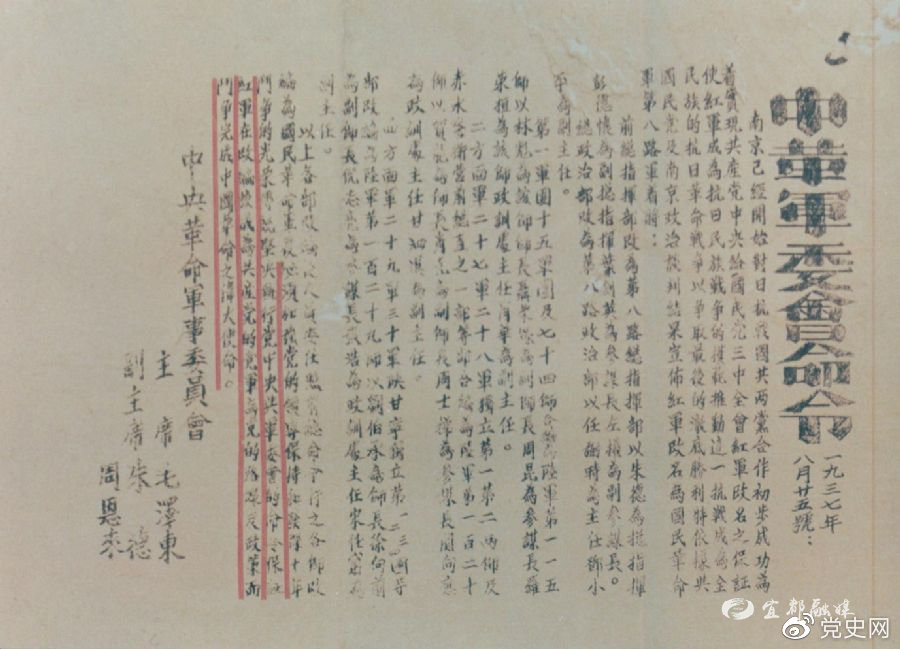 中華軍委會命令
一九三七年
八月廿五號：
南京已經開始對日抗戰國共兩黨合作初步成功為
着實現共產党中央給國民党三中全會紅軍改名之保証
使紅軍成為抗日民族戰争的模範推動這一抗戰成為全
民族的抗日革命戰争以争取最後的澈底勝利特依據共
國民党及南京政治談判結果宣佈紅軍改名為國民革命
軍第八路軍着將：
前總指揮部改為第八路總指揮部以朱德為總指揮
彭德懷為副總指揮葉劍英為參謀長左權為副參謀長。
總政治部改為第八路政治部以任弼時為主任鄧小
平為副主任。
第一軍團十五軍團及七十四師合編為陸軍第一一五
師以林彪為該師師長聶榮臻為副師長周昆為參謀長羅
榮桓為該師政訓處主任蕭華為副主任。
二方面軍二十七軍二十八軍獨立第一第二兩師及
赤水警衛營前總直之一部等部合編為陸軍第一百二十
師以賀龍為師長蕭克為副師長周士擇為參謀長關向應
為政訓處主任甘泗淇為副主任。
四方面軍二十九軍三十軍陝甘寧獨立第一二三四等
部改編為陸軍第一百二十九師以劉伯承為師長徐向前
為副師長倪志亮為參謀長張浩為政訓處主任宋任窮為
副主任。
以上各部改編後人員委任照前總命令行之各部改
編為國民革命軍後必須加強党的領導保持和發揮十年
鬥争的光榮傳統堅決執行党中央與軍委會的命令保証
紅軍在改編後成為共產党的党軍為党的路線及政策而
鬥争完成中國革命之偉大使命。
中央革命軍事委員會
主席毛澤東
副主席朱德
周恩来
宜都融媒
党史网